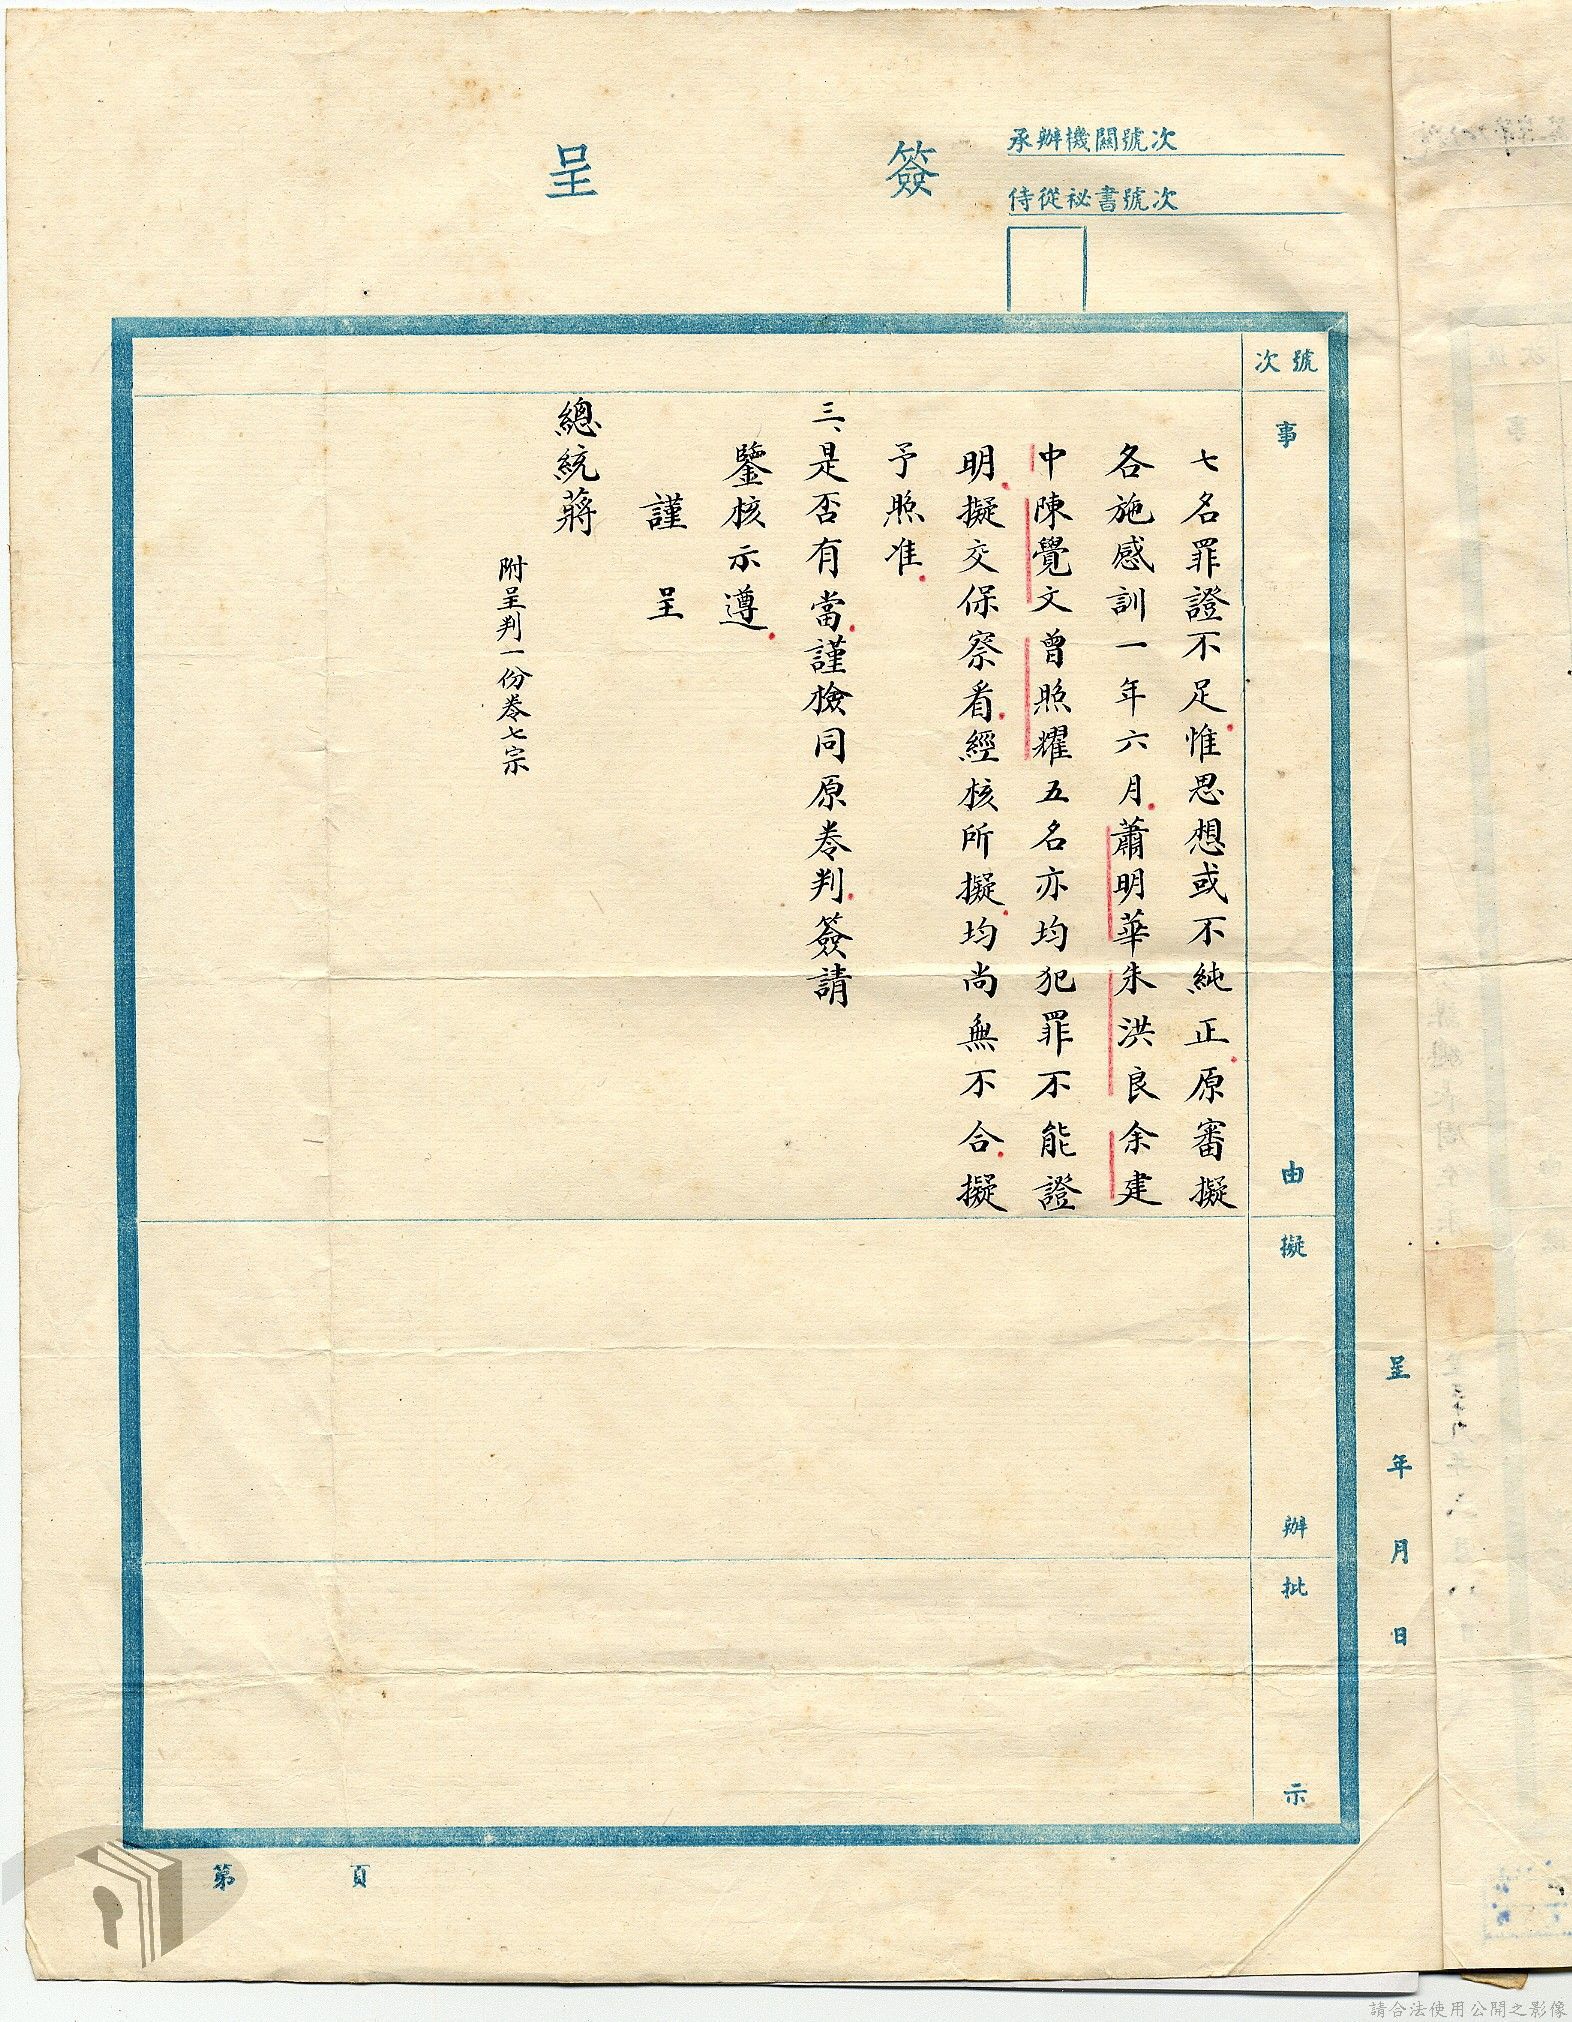 承辦機關號次
侍從祕書號次
簽呈
號次
事由
擬辦
批示
七名罪證不足惟思想或不純正原審擬
各施感訓一年六月蕭明華朱洪良余建
中陳覺文曾照耀五名亦均犯罪不能證
明擬交保察看經核所擬均尚無不合擬
予照准
三、是否有當謹檢同原卷判簽請
鑒核示遵
謹呈
總統蔣
附呈判一份卷七宗
呈 年 月 日
第 頁
請合法使用公開之影像